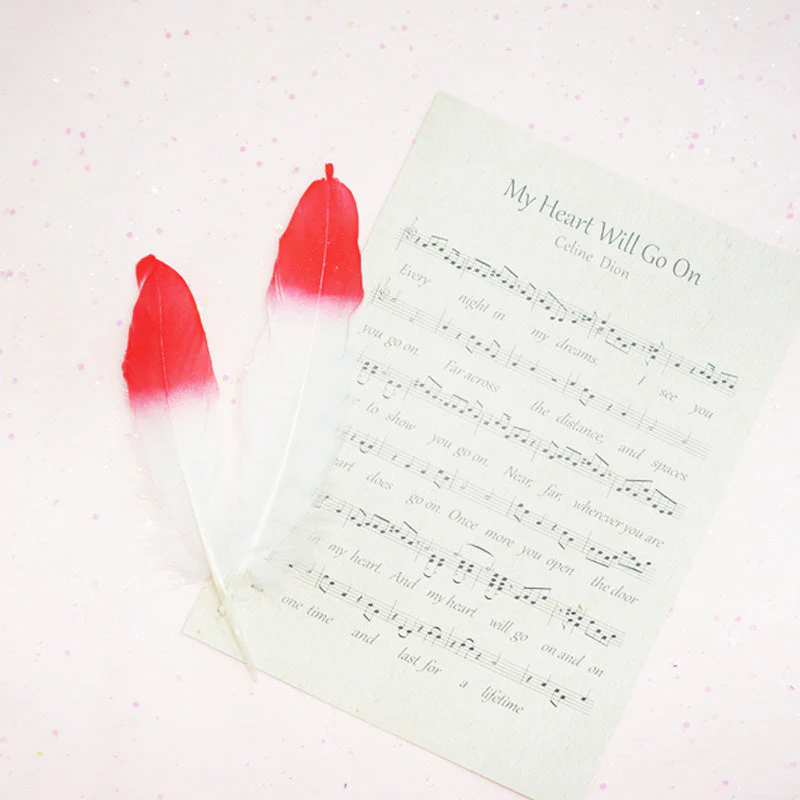 My Heart Will Go On
Celine Dion
Every night in my dreams. I see you
you go on. Far across the distance, and spaces
to show you go on. Near, far, wherever you are
does go on. Once more you open the door
in my heart. And my heart will go on and on
one time and last for a lifetime